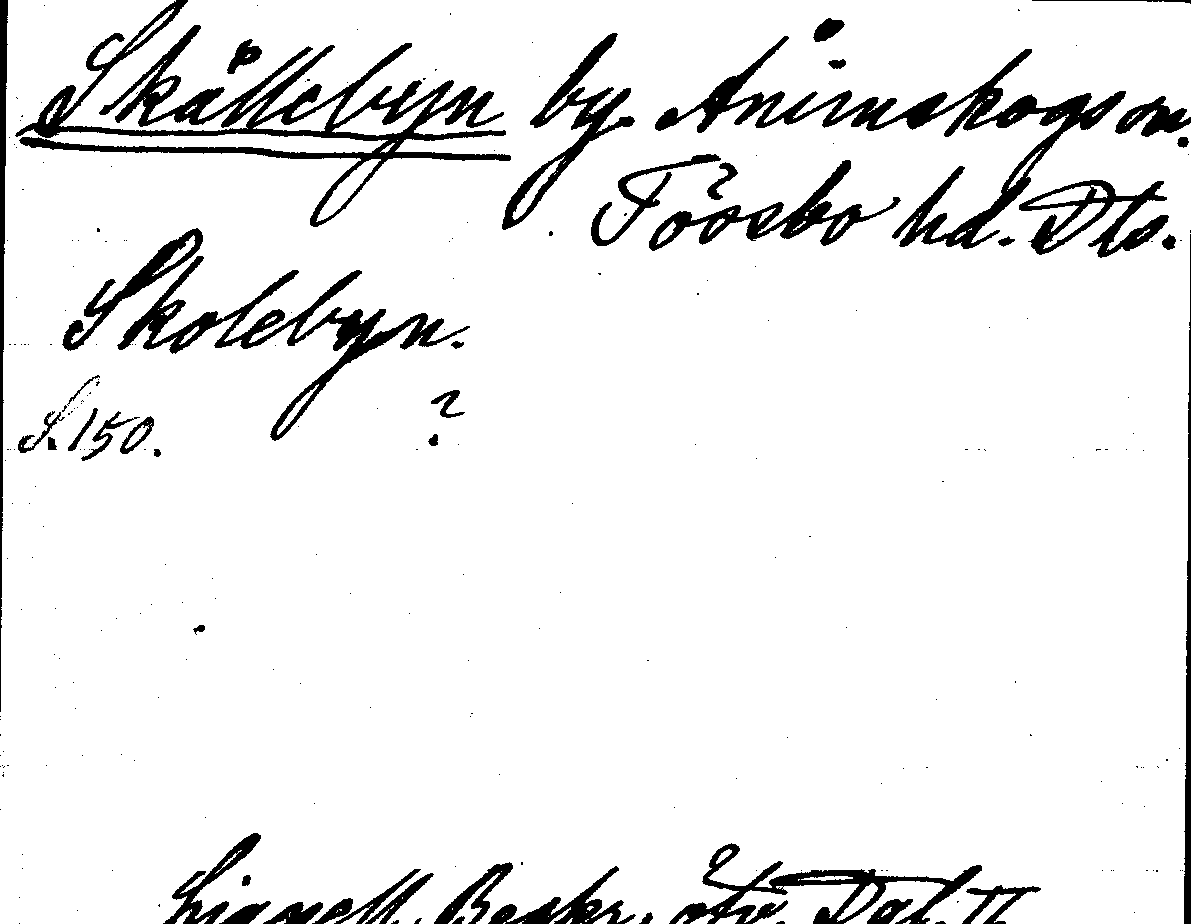 Skållebyn by. Ånimskogs sn.
Tössbo hd. Dls.
Skolebyn.
S. 150. ?
Lignell, Beskr. öfv. Dal. II